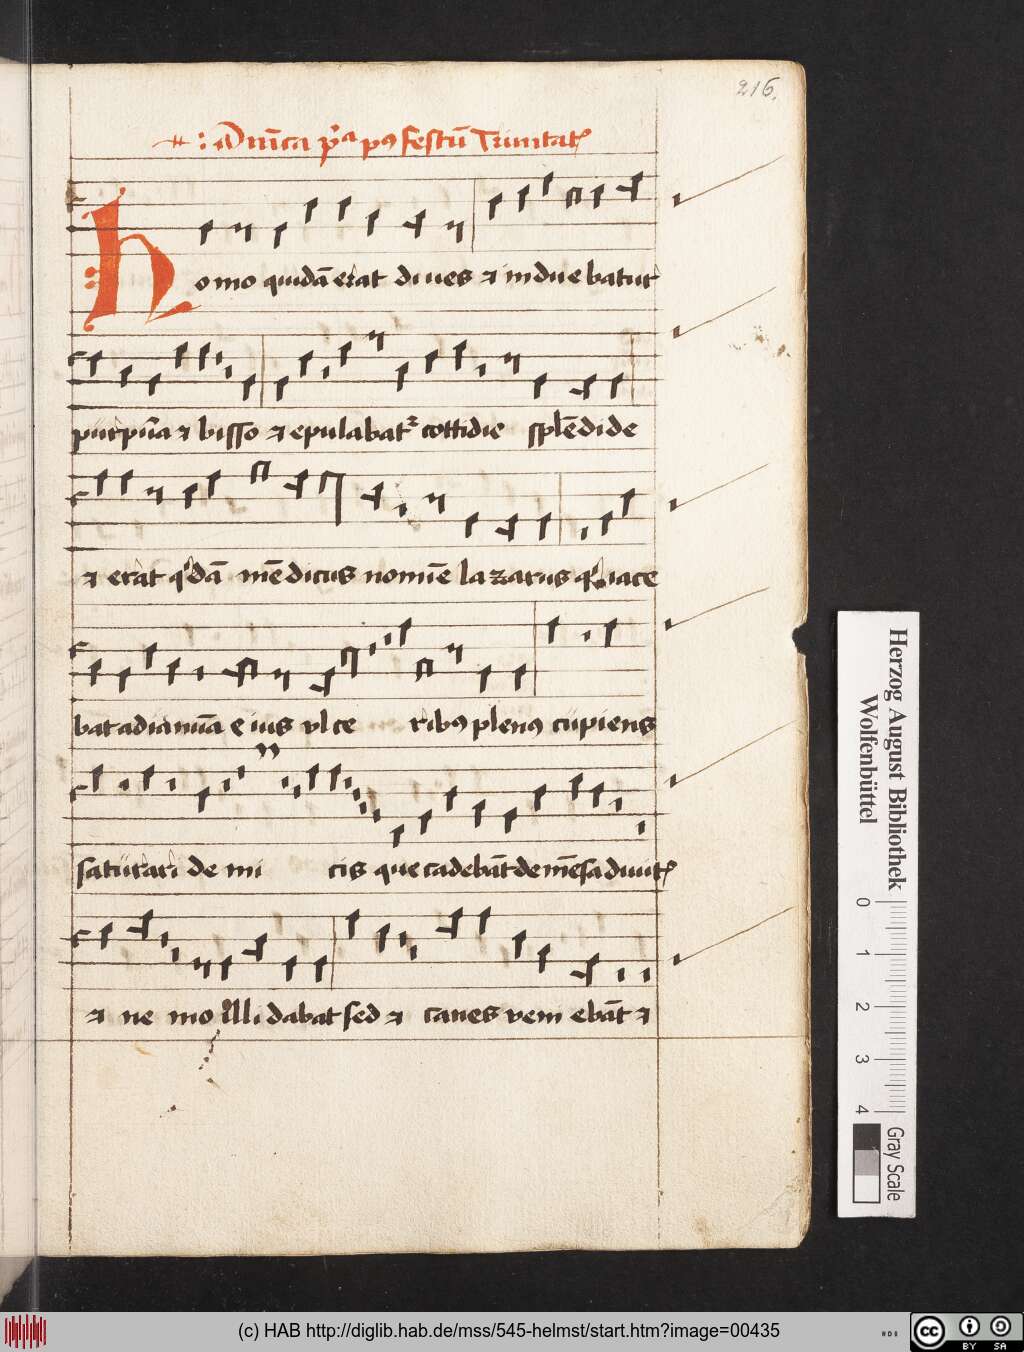 216.
Dn̄ica p̄ᵃ p9 festū Trinitat
Homo quidā erat diues ⁊ induebatur
purpūa ⁊ bisso ⁊ epulabatᷣ cottidie splēdide
⁊ erat qͥdā mēdicus nomīe lazarus qͥ iace
bat ad ianuā eius vlceribꝰ plenꝰ cupiens
saturari de micis que cadebāt de mēsa diuit
⁊ nemo illi dabat sed ⁊ canes veniebāt ⁊
Herzog August Bibliothek
Wolfenbüttel
0 1 2 3 4
Gray Scale
(c) HAB http://diglib.hab.de/mss/545-helmst/start.htm?image=00435
cc BY SA